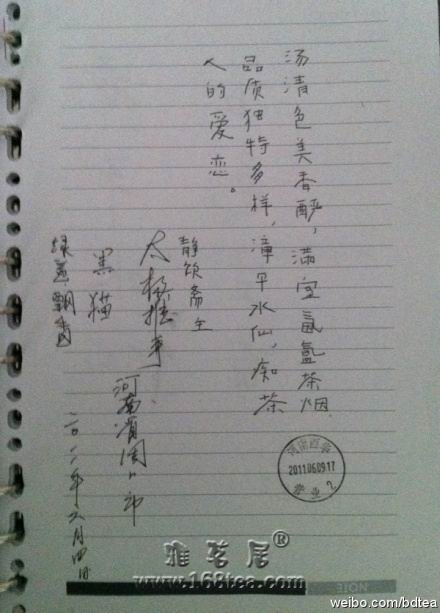 汤清色美香醇，满室氤氲茶烟
品质独特多样，漳平水仙，痴茶
人的爱恋。
静饮斋主
太极推手
黑猫
绿意飘香
河南省周口市
二〇一一年六月四日
2011.06.09.17
营业2
雅茗居®
www.168tea.com
weibo.com/bdtea